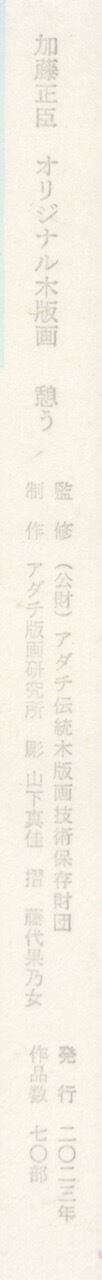 加藤正臣 オリジナル木版画 憩う
監修 (公財)アダチ伝統木版画技術保存財団
制作 アダチ版画研究所 彫 山下真佳 摺 藤代果乃女
発行 二〇二三年
作品数 七〇部